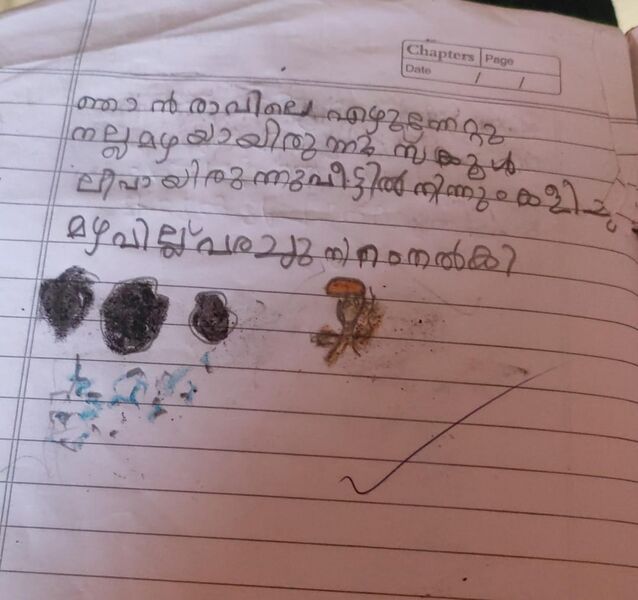 Chapters Page
Date / /
ഞാൻ രാവിലെ എഴുന്നേറ്റു
നല്ല മഴയായിരുന്നു സ്കൂൾ
ലീവായിരുന്നു വീട്ടിൽ നിന്നും കളിച്ചു
മഴവില്ല് വരച്ചു നിറം നൽകി